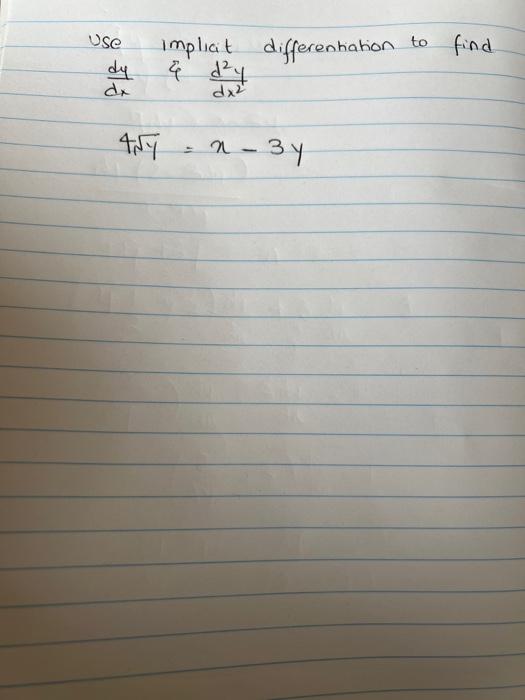 Use implicit differentiation to find
dy/dx & d²y/dx²
4√y = x - 3y